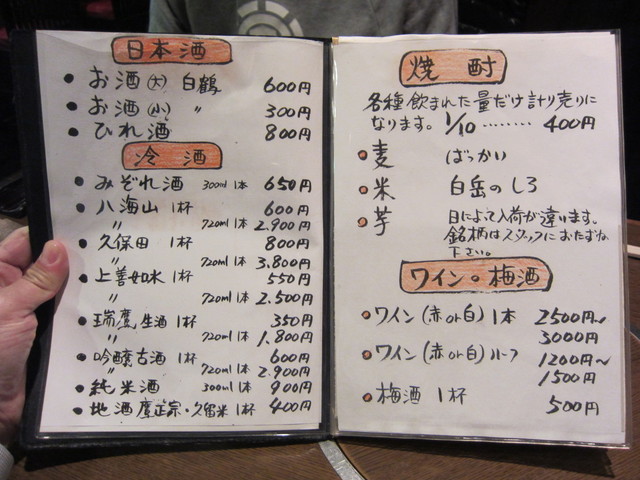 日本酒
お酒(大) 白鶴 600円
お酒(小) 〃 300円
ひれ酒 800円
冷酒
みぞれ酒 300ml 1本 650円
八海山 1杯 600円
〃 720ml 1本 2.900円
久保田 1杯 800円
〃 720ml 1本 3.800円
上善如水 1杯 550円
〃 720ml 1本 2.500円
瑞鷹 生酒 1杯 350円
720ml 1本 1.800円
吟醸古酒 1杯 600円
〃 720ml 1本 2.900円
純米酒 300ml 1本 900円
地酒 鷹正宗・久留米 1杯 400円
焼酎
各種飲まれた量だけ計り売りに
なります。 1/10 ........ 400円
麦 ばっかい
米 白岳のしろ
芋 日によって入荷が違います。
銘柄はスタッフにおたずね
下さい。
ワイン・梅酒
ワイン(赤or白) 1本 2500円~
3000円
ワイン(赤or白) ハーフ 1200円~
1500円
梅酒 1杯 500円